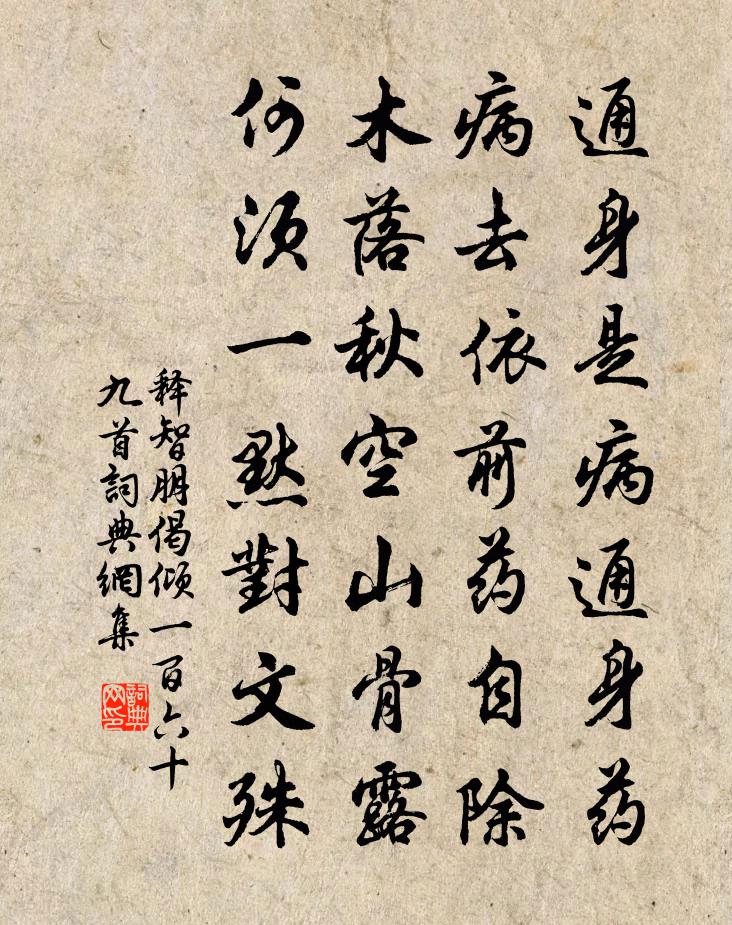 通身是病通身药
病去依前药自除
木落秋空山骨露
何须一默對文殊
释智朋偈倾一百六十
九首詞典網集
詞典
网印